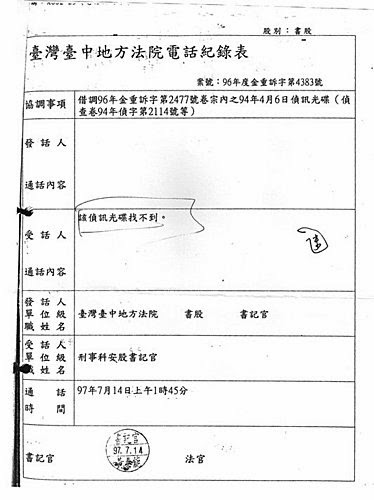 股別：書股
臺灣臺中地方法院電話紀錄表
案號：96年度金重訴字第4383號
協調事項
借調96年金重訴字第2477號卷宗內之94年4月6日偵訊光碟（偵
查卷94年偵字第2114號等）
發話人
通話內容
該偵訊光碟找不到。
受話人
通話內容
發話人
單位級
職姓名
臺灣臺中地方法院 書股 書記官
受話人
單位級
職姓名
刑事科安股書記官
通話
時間
97年7月14日上午1時45分
書記官
書記官
97.7.14
法官